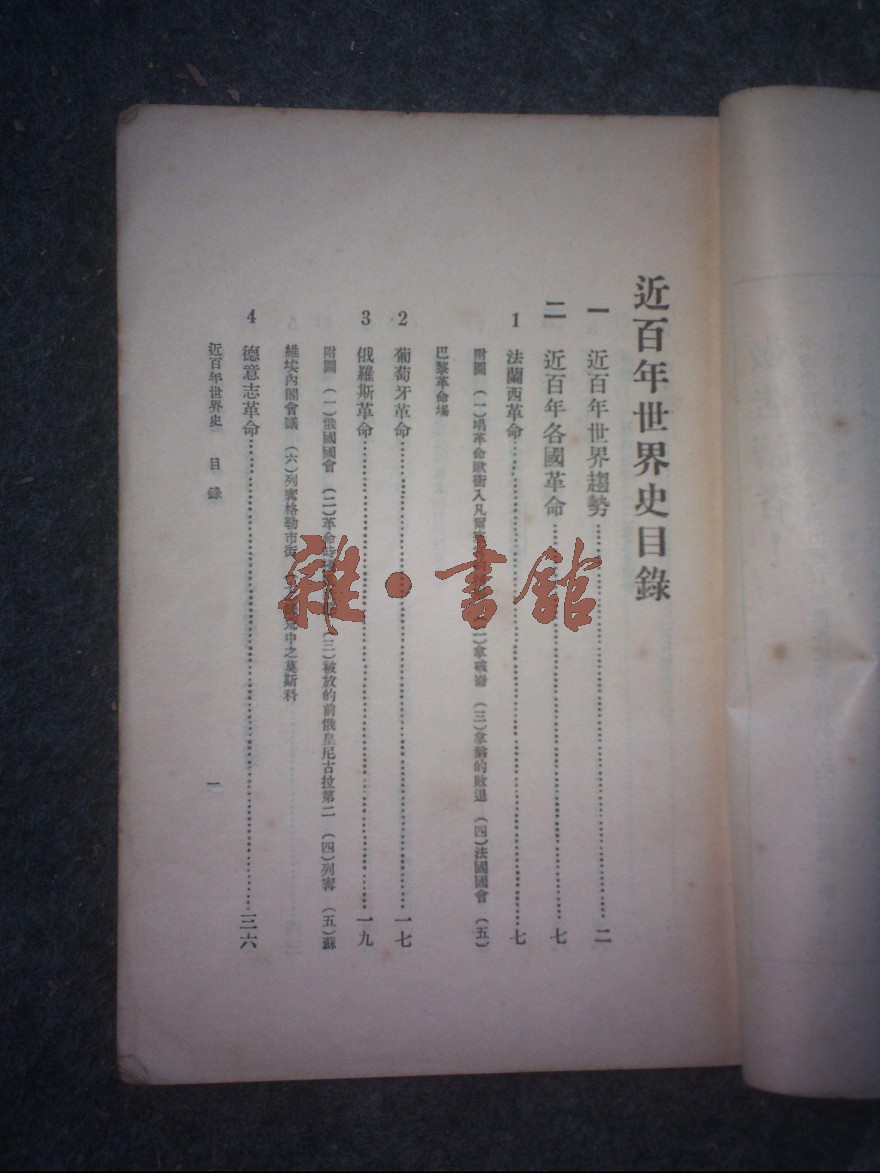 近百年世界史目錄
一　近百年世界趨勢……二
二　近百年各國革命……七
1　法蘭西革命……七
附圖　(一)唱革命歌衝入凡爾 (二)拿破崙　(三)拿翁的敗退　(四)法國國會　(五)
巴黎革命場
2　葡萄牙革命……一七
3　俄羅斯革命……一九
附圖　(一)俄國國會　(二)革命時 (三)被放的前俄皇尼古拉第二　(四)列寗　(五)蘇
維埃內閣會議　(六)列寗格勒市街 中之莫斯科
4　德意志革命……三六
近百年世界史　目錄
一
雜·書館